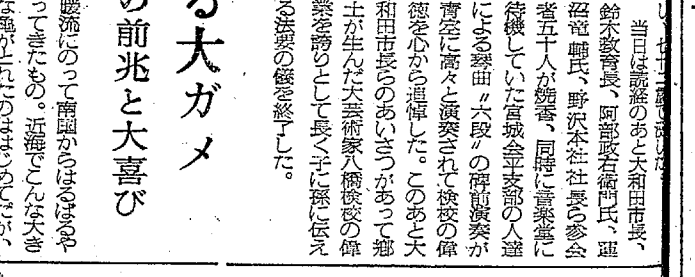 当日は読経のあと大和田市長、
鈴木教育長、阿部政右衛門氏、蓮
沼竜輔氏、野沢本社社長ら参会
者五十人が焼香、同時に音楽堂に
待機していた宮城会平支部の人達
による琴曲〝六段〟の碑前演奏が
青空に高々と演奏されて検校の偉
徳を心から追悼した。このあと大
和田市長らのあいさつがあって郷
土が生んだ大芸術家八橋検校の偉
業を誇りとして長く子に孫に伝え
る法要の儀を終了した。
る大ガメ
の前兆と大喜び
暖流にのって南国からはるばるや
ってきたもの。近海でこんな大き
な亀がとれたのははじめてだが、